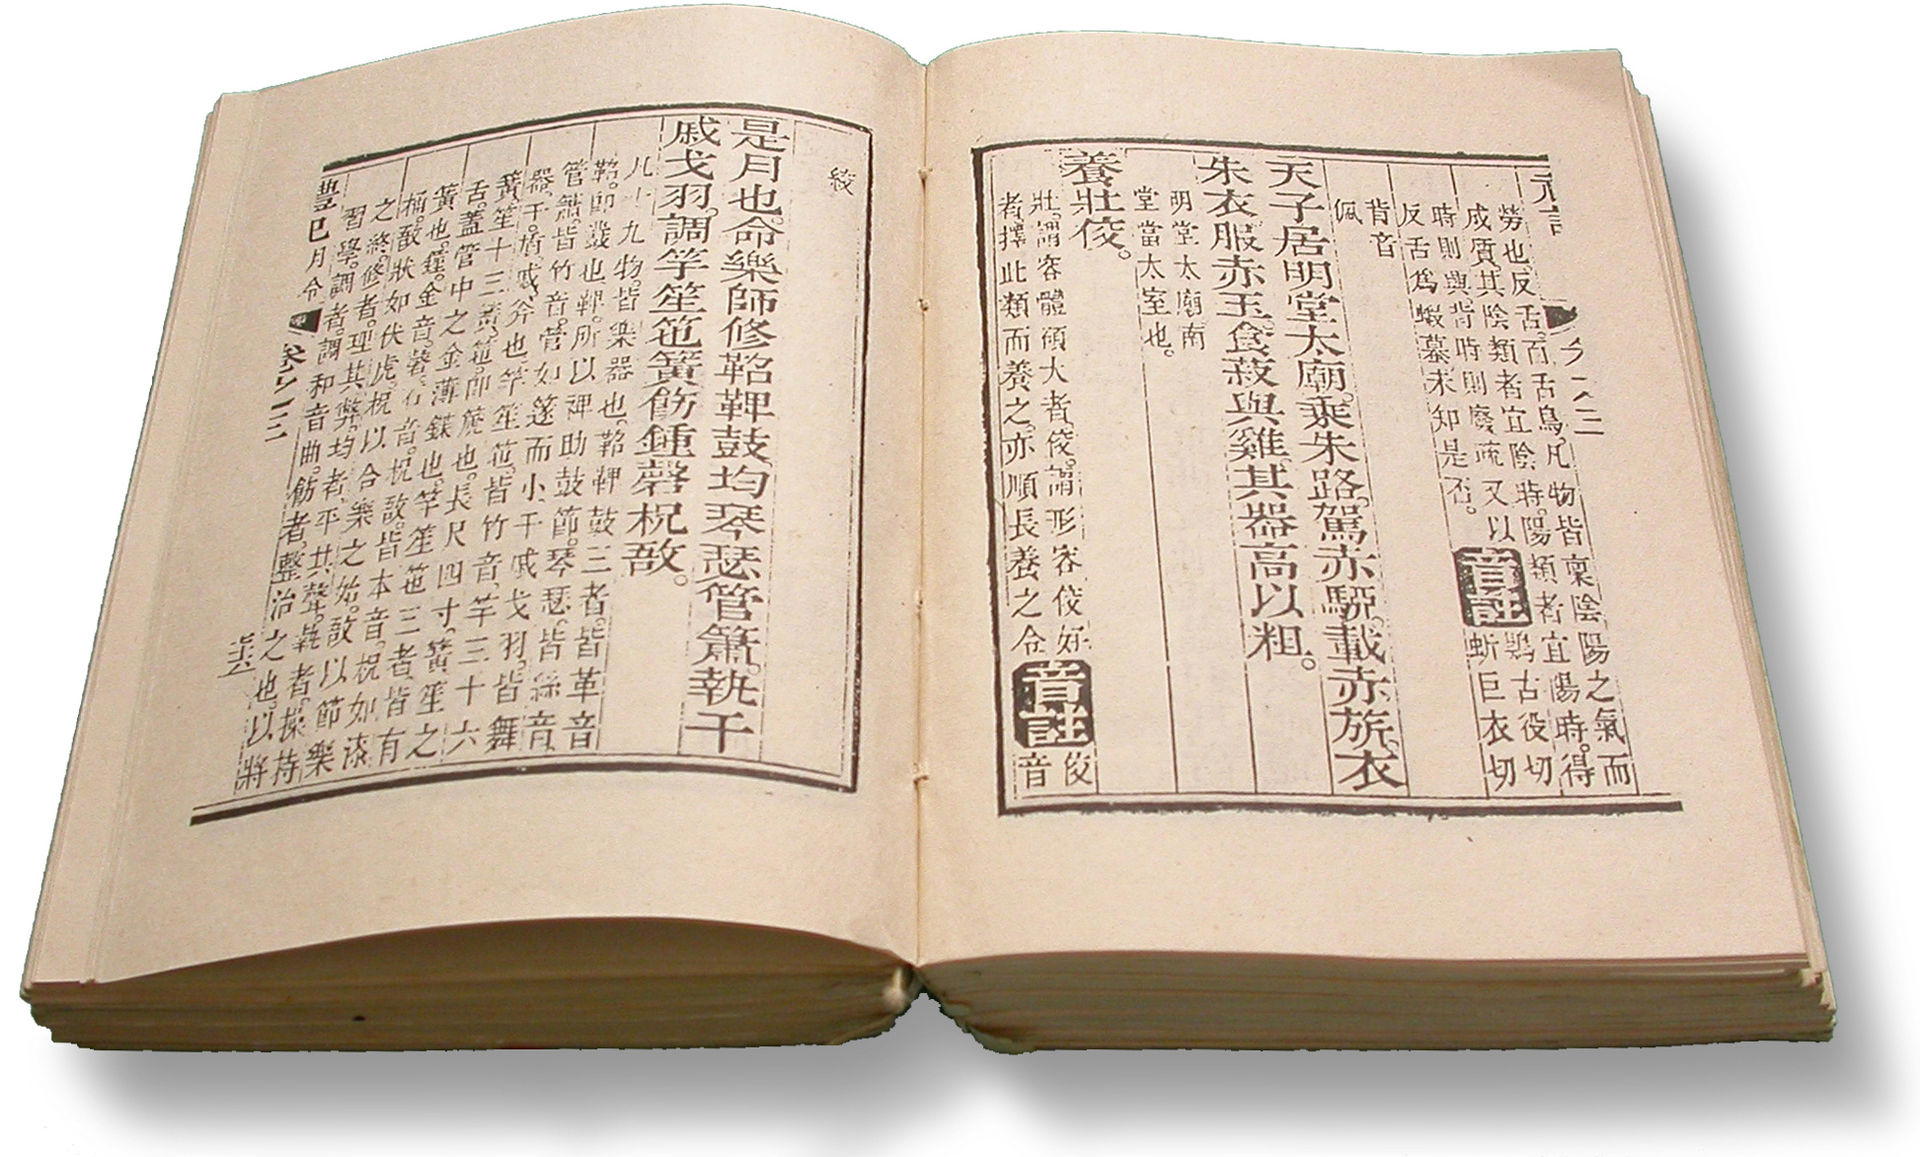 勞也。反舌。百舌鳥。凡物皆稟陰陽之氣而
成質。其陰類者宜陰時。陽類者宜陽時。得
時則與背時則廢疏又以 音註 鶪古役切
反舌爲蝦蟇未知是否。 蚚巨衣切
背音
佩
天子居明堂太廟。乘朱路。駕赤駵。載赤旂。衣
朱衣服赤玉食菽與雞其器高以粗。
明堂太廟南
堂當太室也。
養壯佼。
壯。謂容體碩大者。佼。謂形容佼好 音註 佼
者。擇此類而養之。亦順長養之令 音
絞
是月也。命樂師修鞀鞞鼓均琴瑟管簫。執干
戚戈羽。調竽笙竾簧飭鍾磬柷敔。
凡十九物。皆樂器也。鞀鞞鼓三者。皆革音
鞀。即鼗也。鞞。所以裨助鼓節。琴瑟。皆絲音
管簫。皆竹音。管如篴而小。干戚戈羽。皆舞
器。干。盾。戚。斧也。竽笙竾。皆竹音。竽三十六
簧。笙十三簧。竾。即篪也。長尺四寸。簧。笙之
舌。蓋管中之金薄鍱也。竽笙竾三者。皆有
簧也。鐘。金音。磬。石音。柷敔。皆木音。柷如漆
桶。敔狀如伏虎。柷以合樂之始。敔以節樂
之終。修者。理其弊。均者。平其聲。執者。操持
習學。調者。調和音曲。飭者。整治之也。以將
禮記月令 卷之三